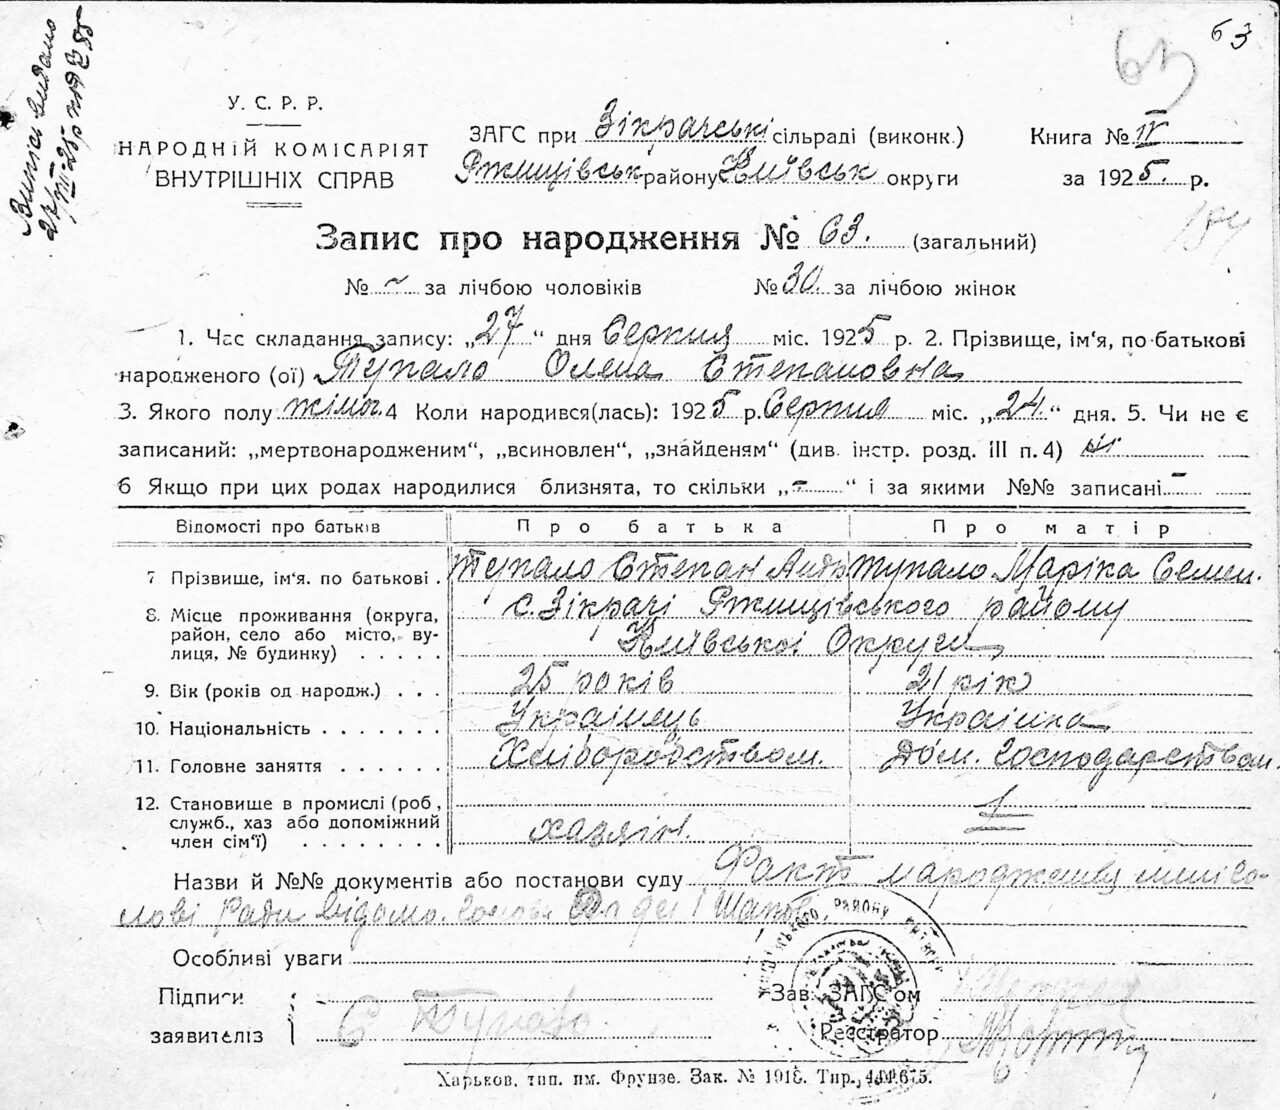 63
63
Випись видано
У. С. Р. Р.
НАРОДНІЙ КОМІСАРІЯТ
ВНУТРІШНІХ СПРАВ
ЗАГС при Зікрачські сільраді (виконк.)
Ржищівськ району Київськ округи
Книга № IV
за 1925. р.
184
Запис про народження № 63. (загальний)
№ ~ за лічбою чоловіків № 30. за лічбою жінок
1. Час складання запису: „27“ дня Серпня міс. 1925 р. 2. Прізвище, ім'я, по-батькові
народженого (ої) Тупало Олена Степановна
3. Якого полу жіноч. 4 Коли народився(лась): 1925 р. Серпня міс. „24.“ дня. 5. Чи не є
записаний: „мертвонародженим“, „всиновлен“, „знайденям“ (див. інстр. розд. III п. 4) ні
6 Якщо при цих родах народилися близнята, то скільки „-“ і за якими №№ записані -
Відомості про батьків Про батька Про матір
7 Прізвище, ім'я. по батькові. Тупало Степан Андр Тупало Маріка Семен.
8. Місце проживання (округа, с. Зікрачі Ржищівського району
район, село або місто, ву-
лиця, № будинку) . . . . . Київської Округи
9. Вік (років од народж.) . . . 25 років 21 рік
10. Національність . . . . . . . Українець Українка
11. Головне заняття . . . . . . Хліборобством. Дом. Господарством.
12. Становище в промислі (роб,
служб., хаз або допоміжний
член сім'ї) . . . . . . . . хазяїн.
Назви й №№ документів або постанови суду Факт народження голі Го-
лові Ради відомо.
Особливі уваги
Підписи
заявителіз
С Тупало
Зав. ЗАГС'ом
Реєстратор
Харьков, тип. им. Фрунзе. Зак. № 1918. Тир.